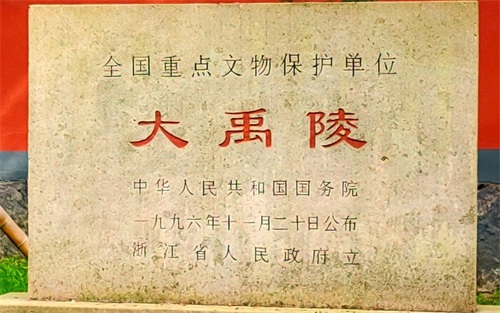 全国重点文物保护单位
大禹陵
中华人民共和国国务院
一九九六年十一月二十日公布
浙江省人民政府立